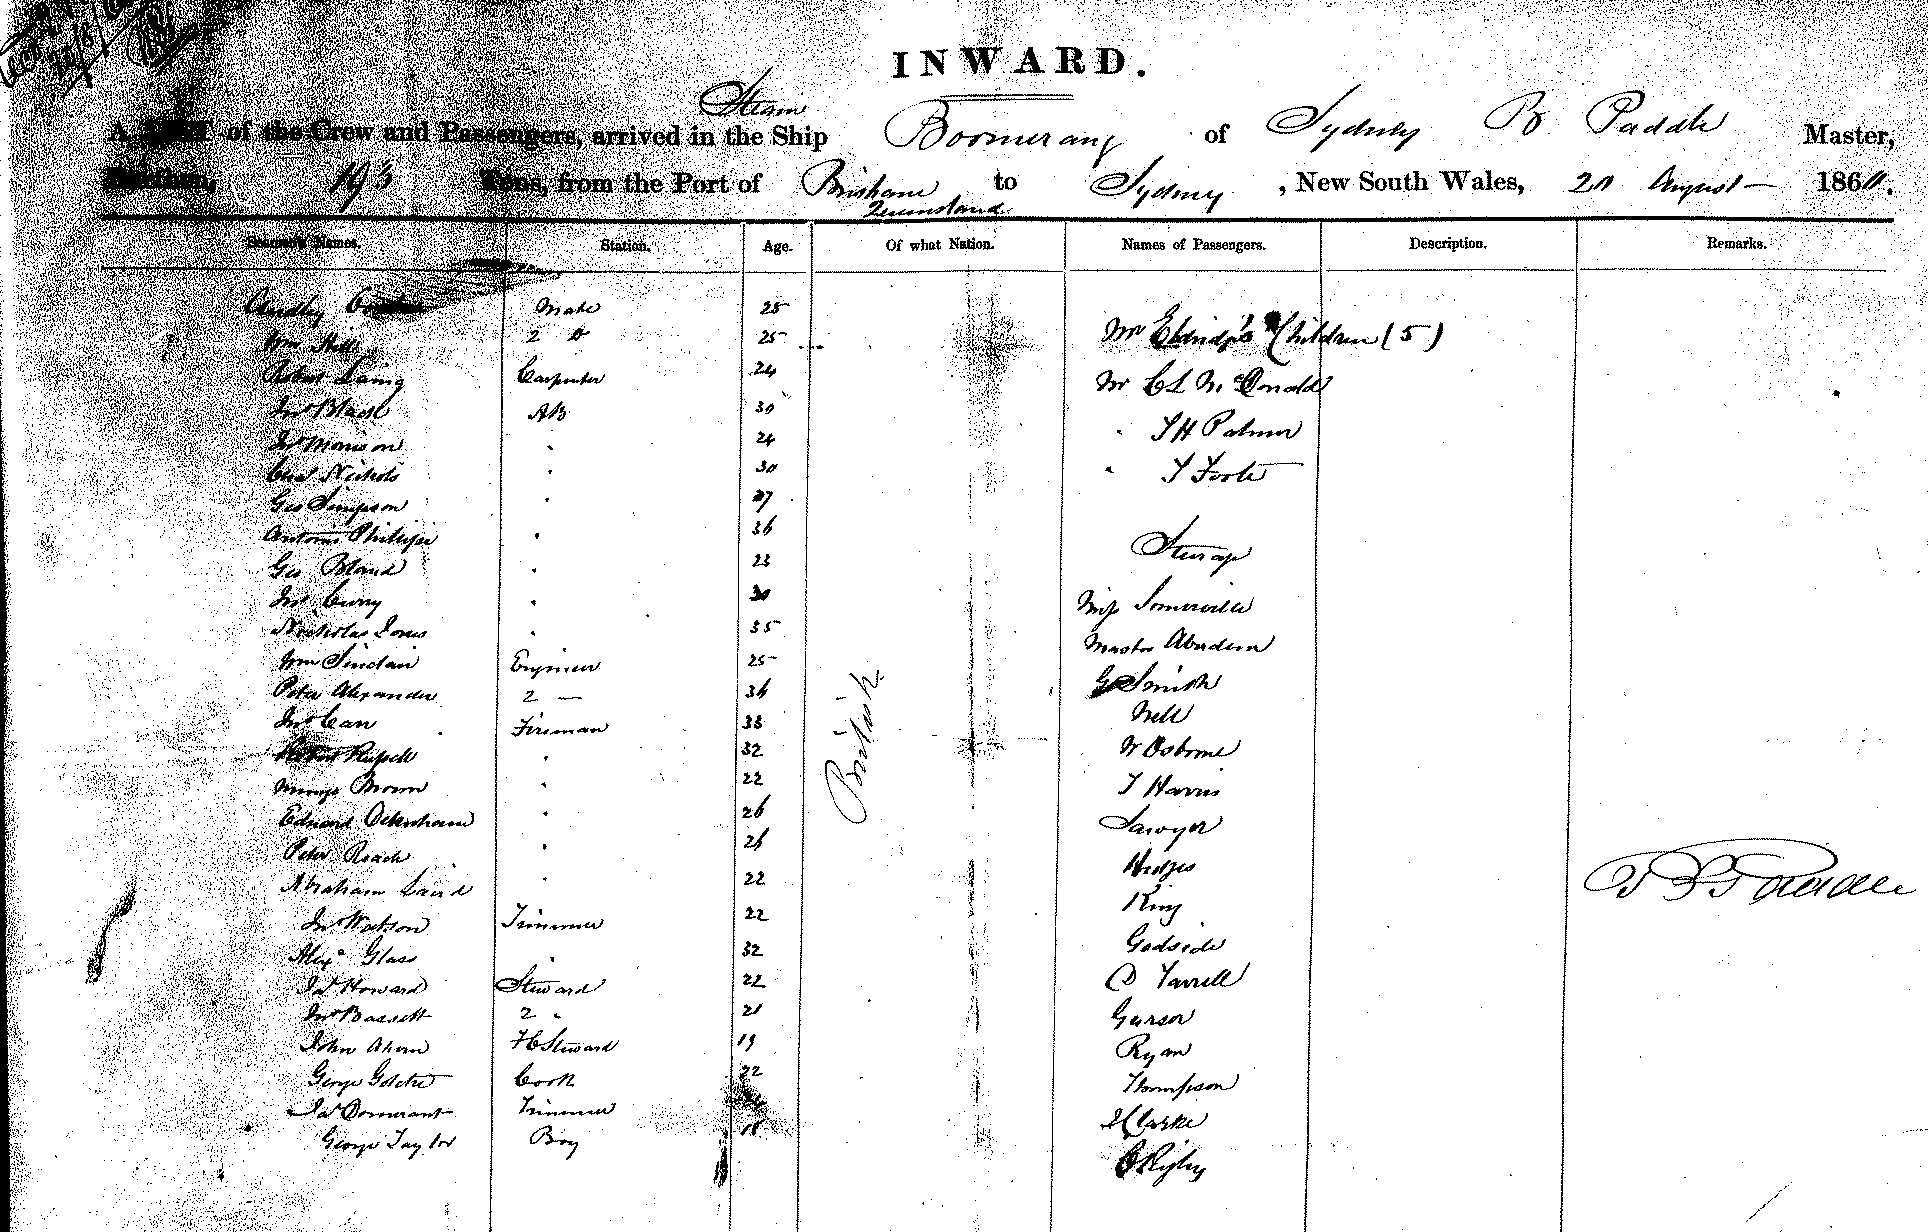 INWARD.
Steam
A List of the Crew and Passengers, arrived in the Ship Boomerang of Sydney B Paddle Master,
Burthen, 193 Tons, from the Port of Brisbane to Sydney, New South Wales, 20 August 1860.
Queensland
Seamen's Names. Station. Age. Of what Nation. Names of Passengers. Description. Remarks.
Mate 25
2 Do 25 Mr Eldridge's Children (5)
Robert Laing Carpenter 24 Mr C L McDonald
Jno Black AB 30 " T H Palmer
Jno Morrison " 24
Chas Nichols " 30 " T Foote
Geo Simpson " 27
Antonio Phillips " 36 Steerage
Geo Bland " 23
Jno Curry " 30 Miss Somerville
Nicholas Jones " 35 Master Aberdeen
Wm Sinclair Engineer 25 G Smith
Peter Alexander 2 — 36 Nell
Jno Carr Fireman 38 W Osborne
Robert Russell " 32 T Harris
Mungo Brown " 22 Sawyer
Edward " 26 Hedges
Peter Roach " 26 King
Abraham Laird " 22
Jno Watson Trimmer 22
Alexr Glass " 32 D Farrell
Jas Howard Steward 22
Jno Bassett 2 " 21 Ryan
John Ahern FC Steward 19 Thompson
George Cook 22 J Clarke
Jas Trimmer Rigby
George Taylor Boy 18
British